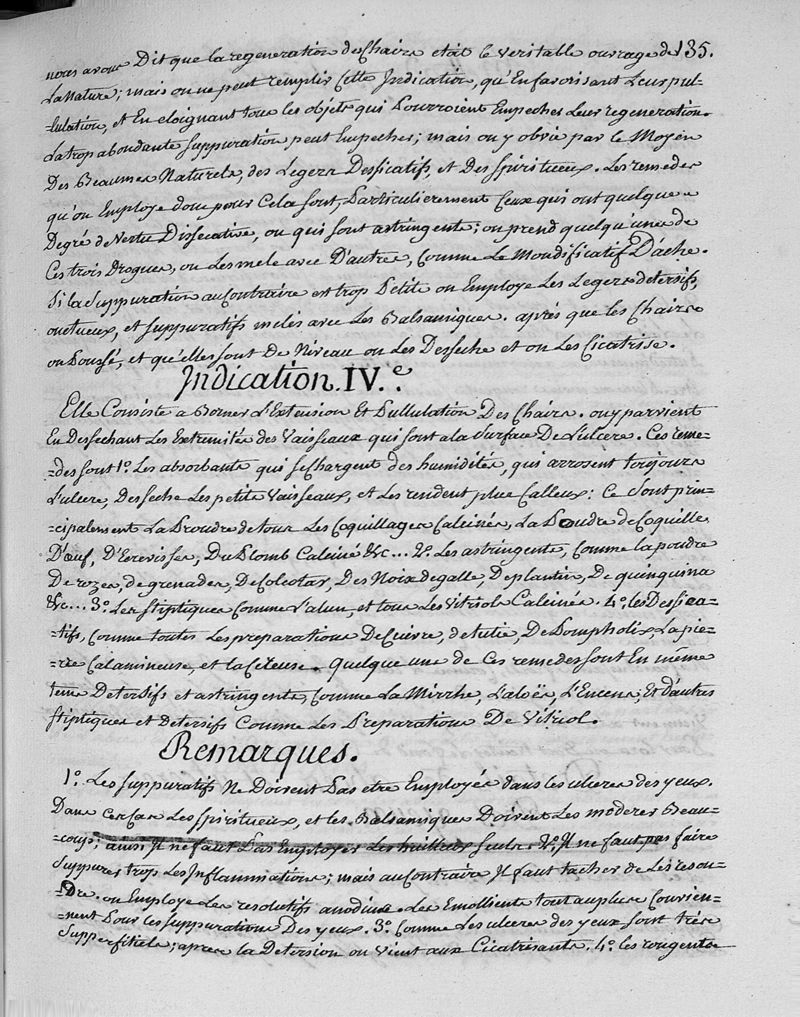 nous avons Dit que la regeneration des Chairs etoit le veritable ouvrage de 135.
La Nature; mais on ne peut remplir Cette Indication, qu'En favorisant Leur pul-
-lulation, et En eloignant tous les objets qui Pourroient Empecher Leur regeneration.
La trop abondante suppuration peut Empecher; mais on y obvie par le Moyen
Des Beaumes Naturels, des Legers Dessicatifs, et Des spiritueux. Les remedes
qu'on Employe donc pour Cela sont, Particulierement Ceux qui ont quelque
Degré de Vertu Dissecative, ou qui sont astringents; on prend quelqu'unes de
Ces trois Drogues, on Les mele avec D'autres, Comme Le Mondificatif D'ache.
Si la Suppuration au Contraire est trop Petite on Employe Les Legers detersifs,
onctueux, et suppuratifs melés avec Les Balsamiques. après que les Chairs
on Poussé, et qu'elles sont De Niveau on Les Desseche et on Les Cicatrise.
Indication. IV.e
Elle Consiste a Borner L'Extension Et Pullulation Des Chairs. on y parvient
En Dessechant Les Extremités des Vaisseaux qui sont a la Surface De L'ulcere. Ces reme-
-des sont 1.o Les absorbants qui se Chargent des humidités, qui arrosent toujours
L'ulcere, Desseche Les petits Vaisseaux, et Les rendent plus Calleux: Ce sont prin-
-cipalement La Poudre de tous Les Coquillages Calcinés, La Poudre de Coquille
D'œuf, D'Ecrevisses, Du Plomb Calciné &c... 2.o Les astringents, Comme la poudre
De rozes, de grenades, De Colcotar, Des Noix de galle, De plantin, De quinquina
&c... 3.o Les stiptiques Comme L'alun, et tous Les Vitriols Calcinés. 4.o les Dessica-
-tifs, Comme toutes Les preparations De Cuivre, de tutie, De Pompholix, La pie-
-rre Calamineuse, et la Céreuse. quelque une de Ces remedes sont En même
tems Detersifs et astringents, Comme La Mirrhe, L'aloës, L'Encens, Et d'autres
stiptiques et Detersifs Comme Les Preparations De Vitriol.
Remarques.
1.o Les suppuratifs Ne Doivent Pas etre Employés dans les ulceres des yeux.
Dans ce cas Les spiritueux, et les Balsamiques Doivent Les moderer Beau-
-coup; aussi Il ne faut Pas Employer Les huilleux seuls. 2.o Il ne faut pas faire
suppurer trop Les Inflammations; mais au Contraire Il faut tacher de Les resou-
-Dre. on Employe Les resolutifs anodins. Les Emollients tout au plus Convien-
-nent Pour les suppurations Des yeux. 3.o Comme Les ulceres des yeux sont très
Supperfitiels; apres la Detersion on Vient aux Cicatrisants. 4.o les rongents